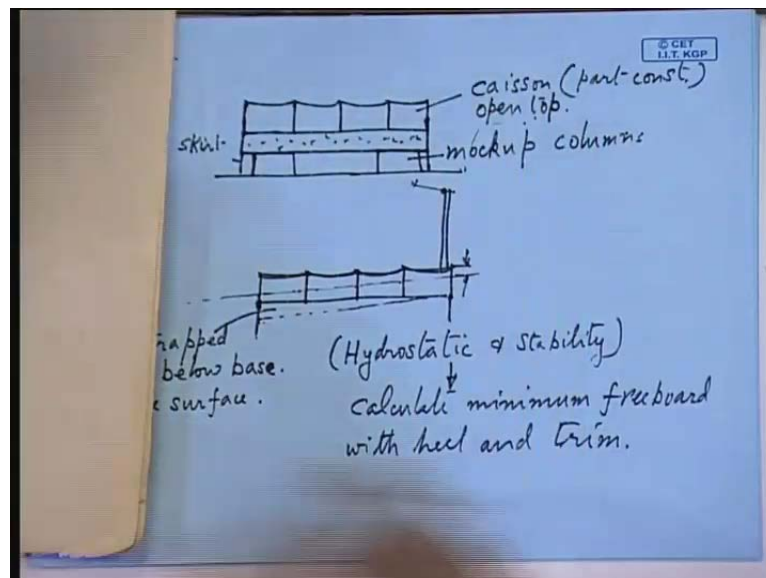 © CET
I.I.T. KGP
caisson (part-const.)
open top.
skirt
mockup columns
below base.
surface.
(Hydrostatic & stability)
calculate minimum freeboard
with heel and trim.